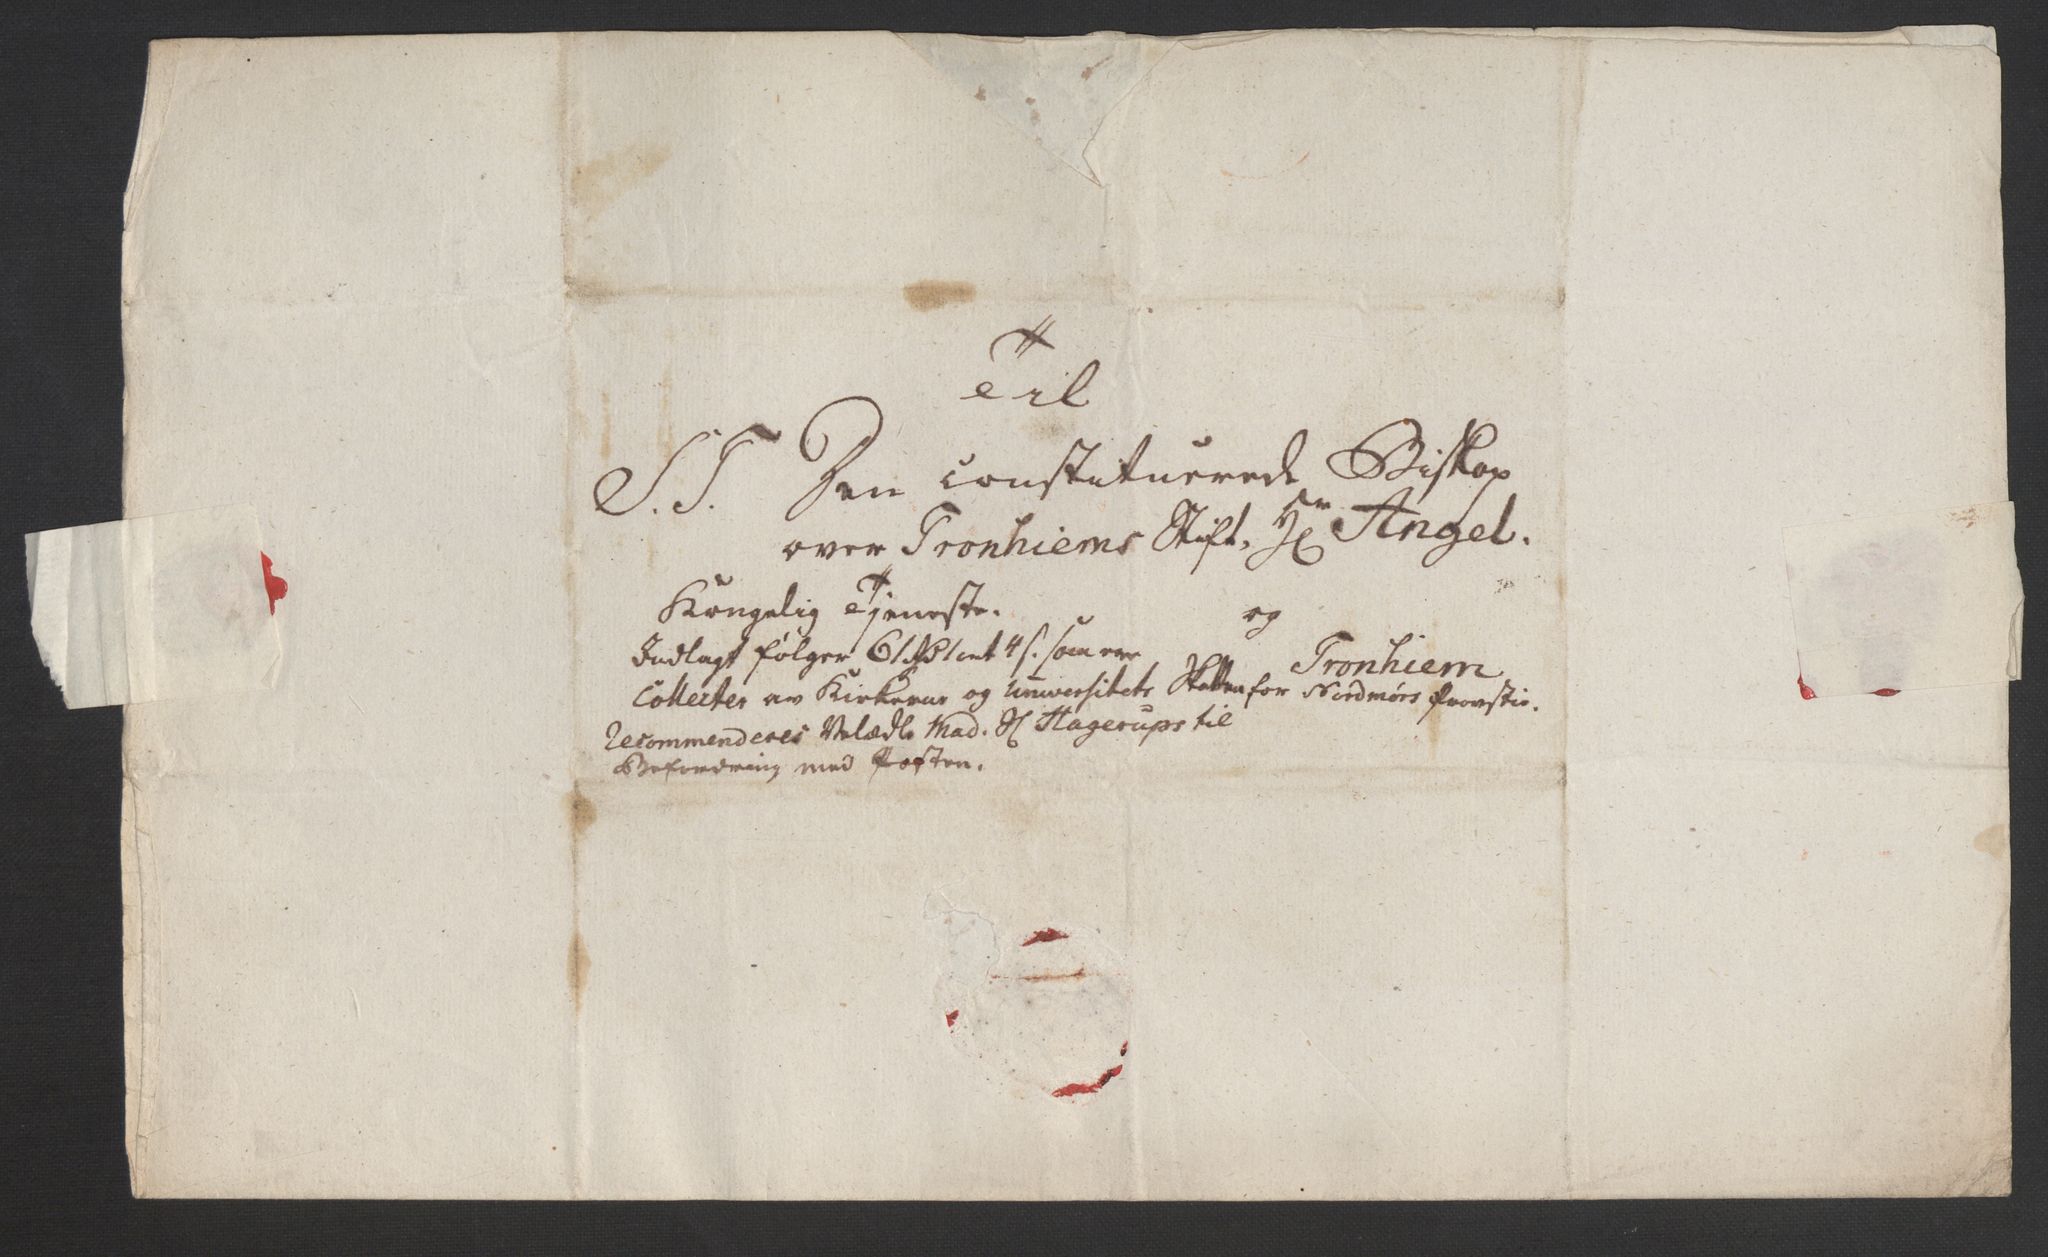 Til
S. T. Den constituerede Biskop
over Tronhiems Stift, Hr Angel.
Kongelig Tjeneste.
og
Indlagt følger 61 4 s. som ere
Tronhiem
Collecter av Kirkerne og Universitets Skatten for Nordmørs Provstie.
recommenderes Velædle Mad. Sl Hagerups til
Befordring med Posten.